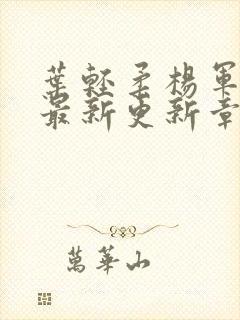 葉輕柔楊軍
最新更新章
萬華山